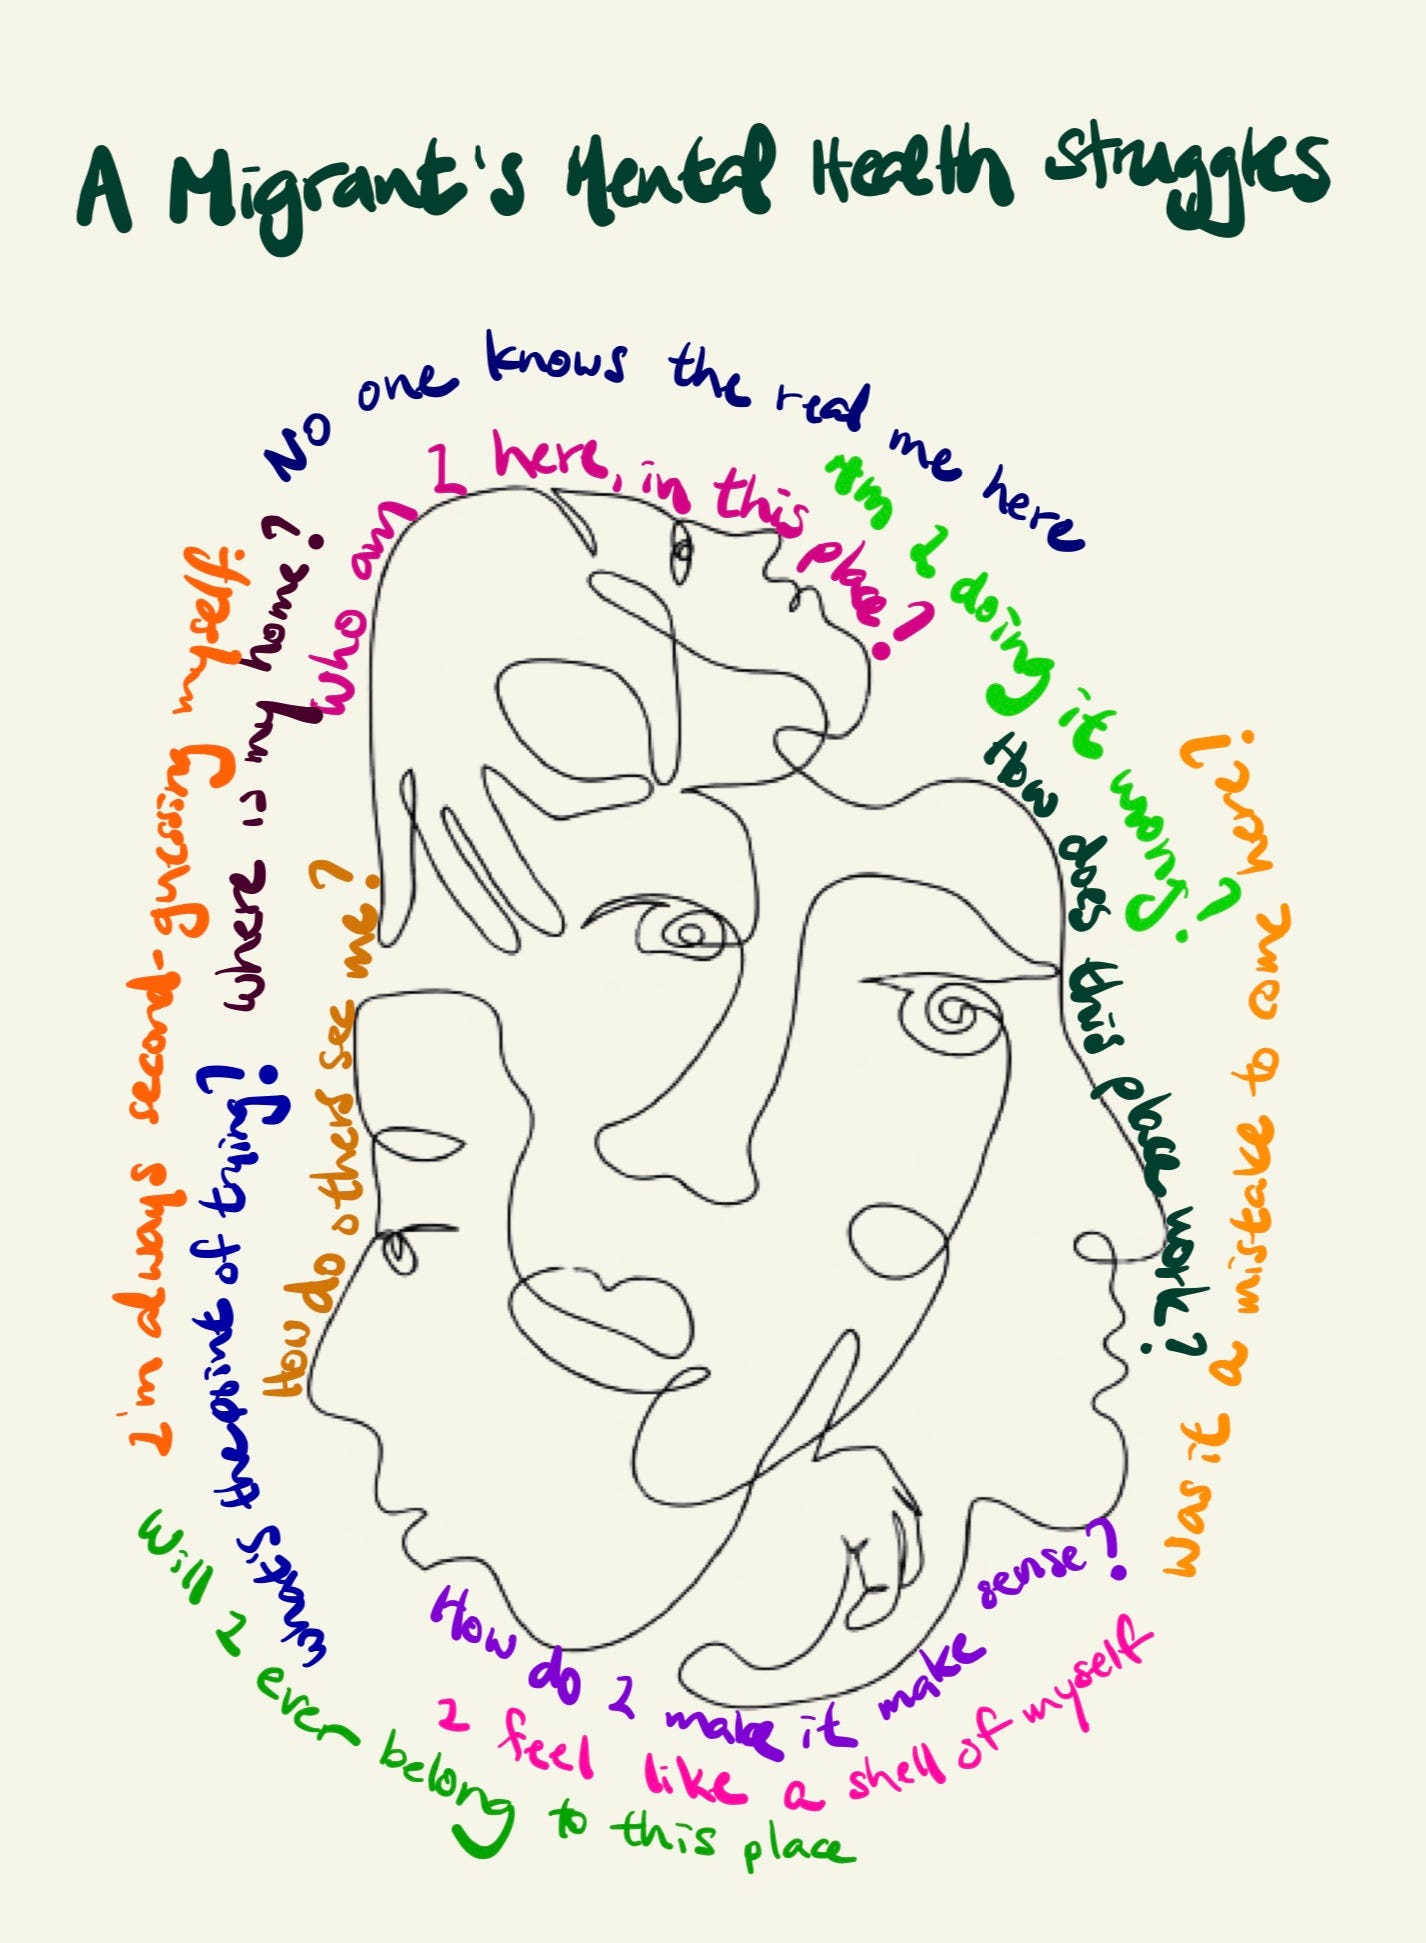 A Migrant's Mental Health Struggles
No one knows the real me here
Who am I here, in this place?
Am I doing it wrong?
How does this place work?
Was it a mistake to come here?
I'm always second-guessing myself
where is my home?
How do others see me?
What's the point of trying?
Will I ever belong to this place
How do I make it make sense?
I feel like a shell of myself